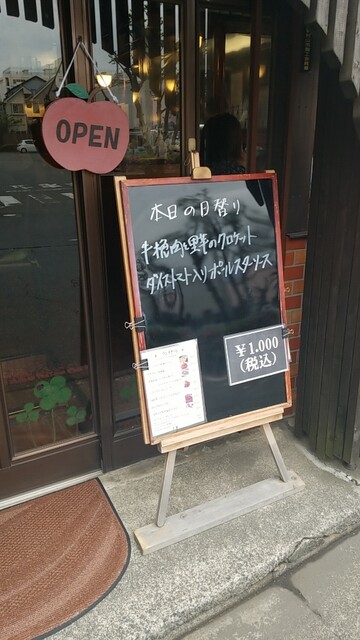 OPEN
本日の日替り
牛挽肉と里芋のクロケット
ダイストマト入りボールスターソース
¥1.000
(税込)